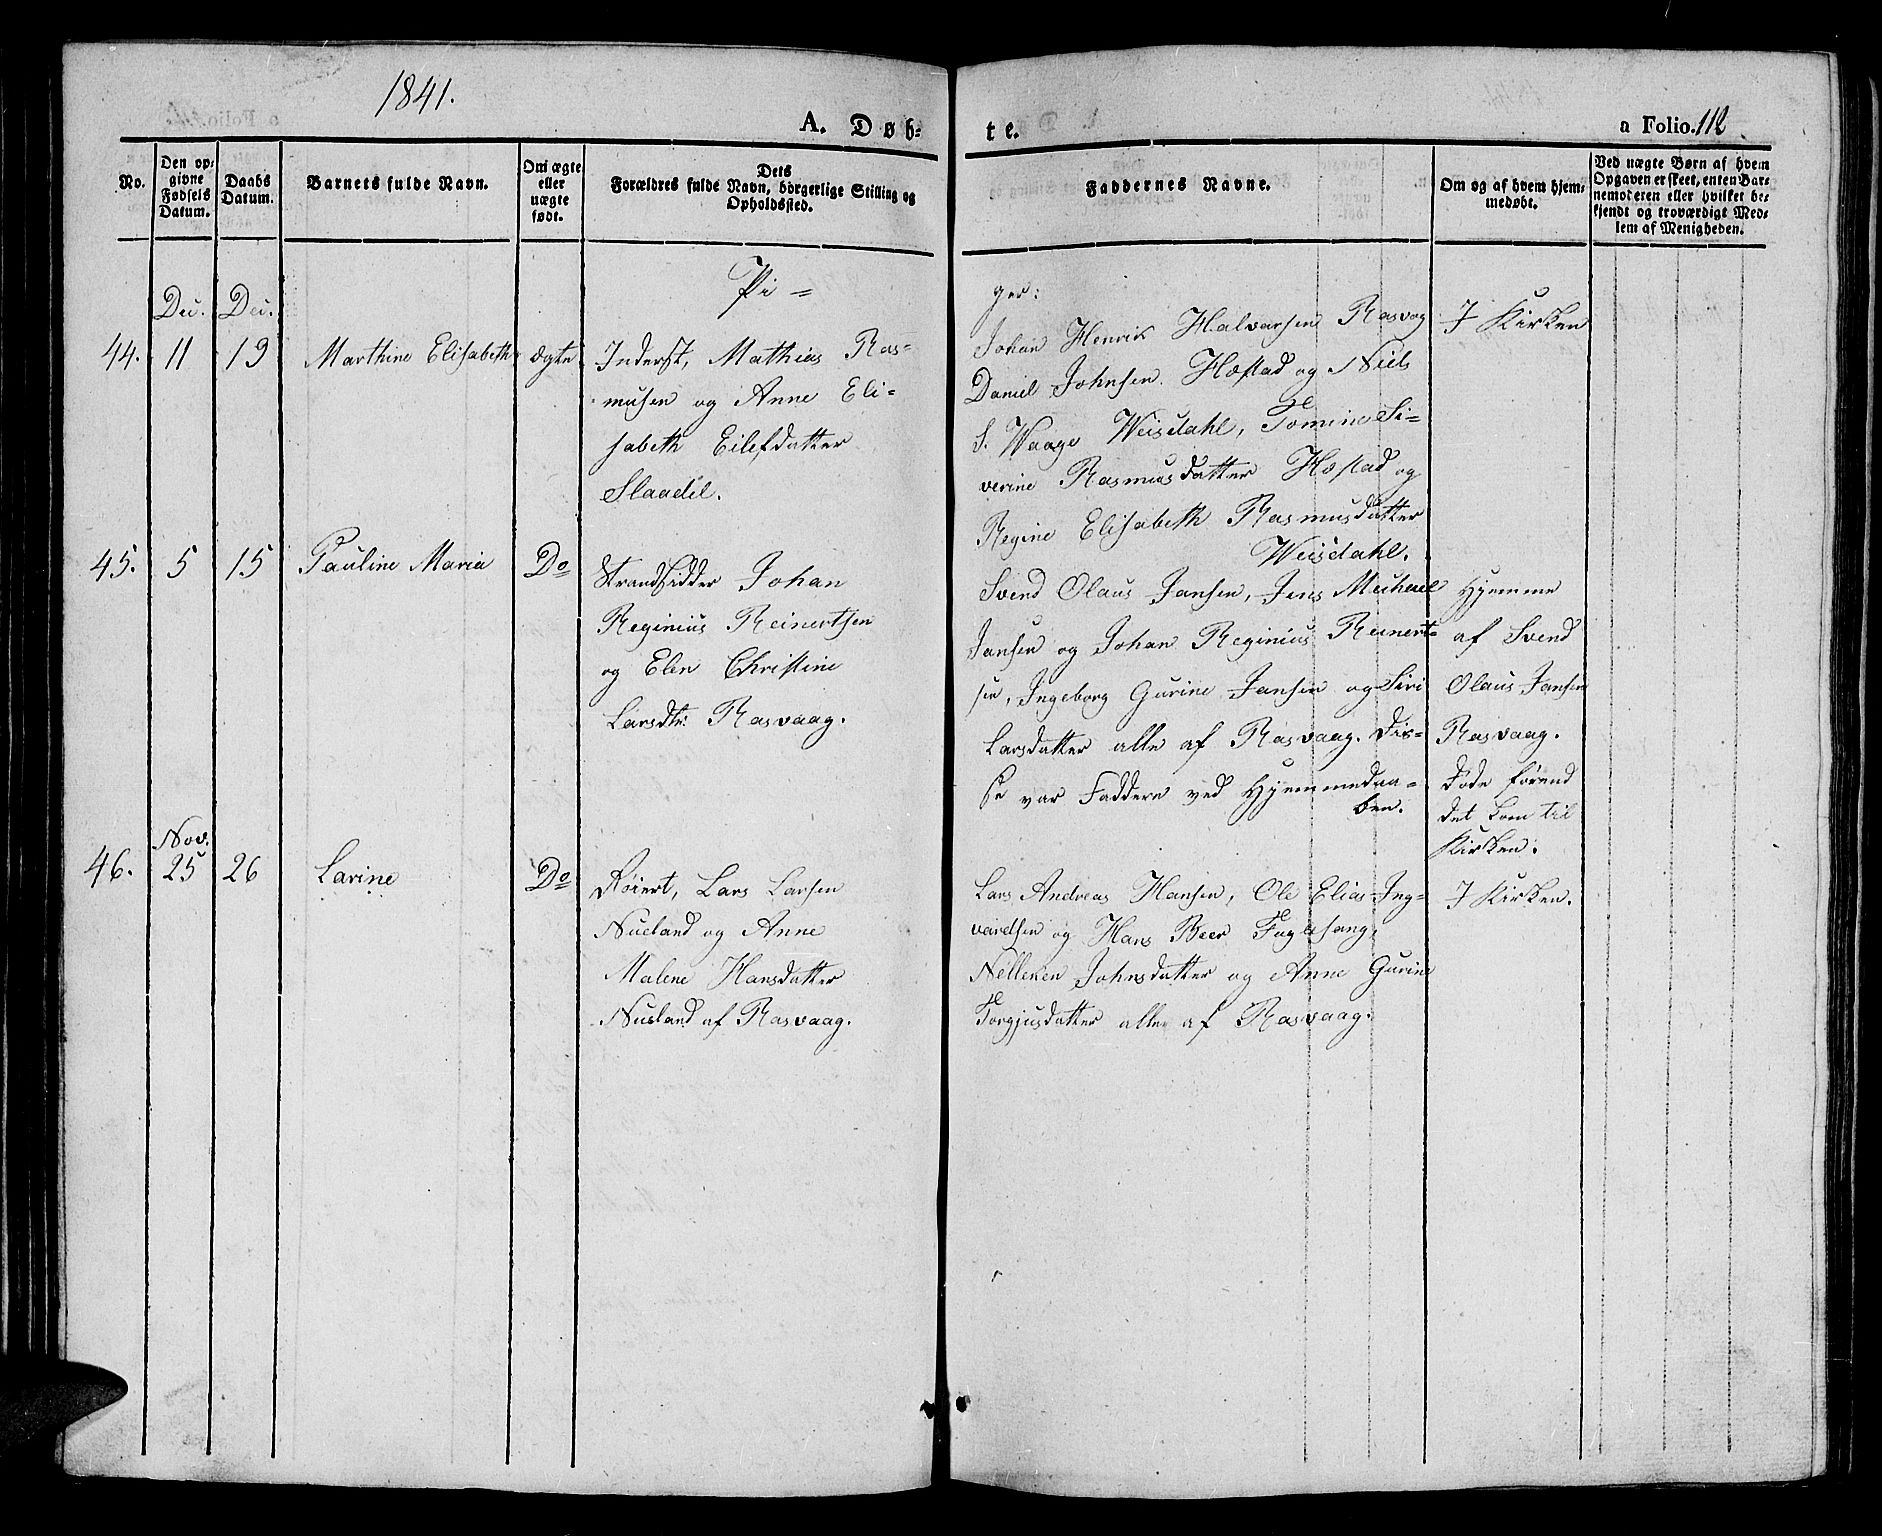 1841.
A. Døb-
te.
a Folio. 112.
No.
Den op-
givne
Fødsels
Datum.
Daabs
Datum.
Barnets fulde Navn.
Om ægte
eller
uægte
født.
Dets
Forældres fulde Navn, borgerlige Stilling og
Opholdssted.
Faddernes Navne.
Om og af hvem hjem-
medøbt.
Ved uægte Børn af hvem
Opgaven er skeet, enten Bar-
nemoderen eller hvilket be-
kjendt og troværdigt Med-
lem af Menigheden.
Pi =
ger:
Dec. Dec.
44. 11 19 Marthine Elisabeth ægte
Inderst, Mathias Ras-
musen og Anne Eli-
sabeth Eilefdatter
Slaadel.
Johan Henrik Halvorsen Rasvog
Daniel Johnsen Hæstad og Niels
S. Waage Weisdahl, Tomine Si-
verine Rasmusdatter Hæstad og
Regine Elisabeth Rasmusdatter
Weisdahl.
I Kirken
45. 5 15 Pauline Maria Do
Strandsidder Johan
Reginius Reinertsen
og Elen Christine
Larsdtr: Rasvaag.
Svend Olaus Jansen, Jens Michael
Jansen og Johan Reginius Reinert-
sen, Ingeborg Gurine Jansen og Siri
Larsdatter alle af Rasvaag. Dis-
se var Faddere ved Hjemmedaa-
ben.
Hjemme
af Svend
Olaus Jansen
Rasvaag.
Døde førend
det kom til
Kirken.
Nov.
46. 25 26 Larine Do
Røiert, Lars Larsen
Nueland og Anne
Malene Hansdatter
Nueland af Rasvaag.
Lars Andreas Hansen, Ole Elias Ing-
vardsen og Hans Beer Fuglesang,
Nelleken Johnsdatter og Anne Gurine
Torgjusdatter alle af Rasvaag.
I Kirken.